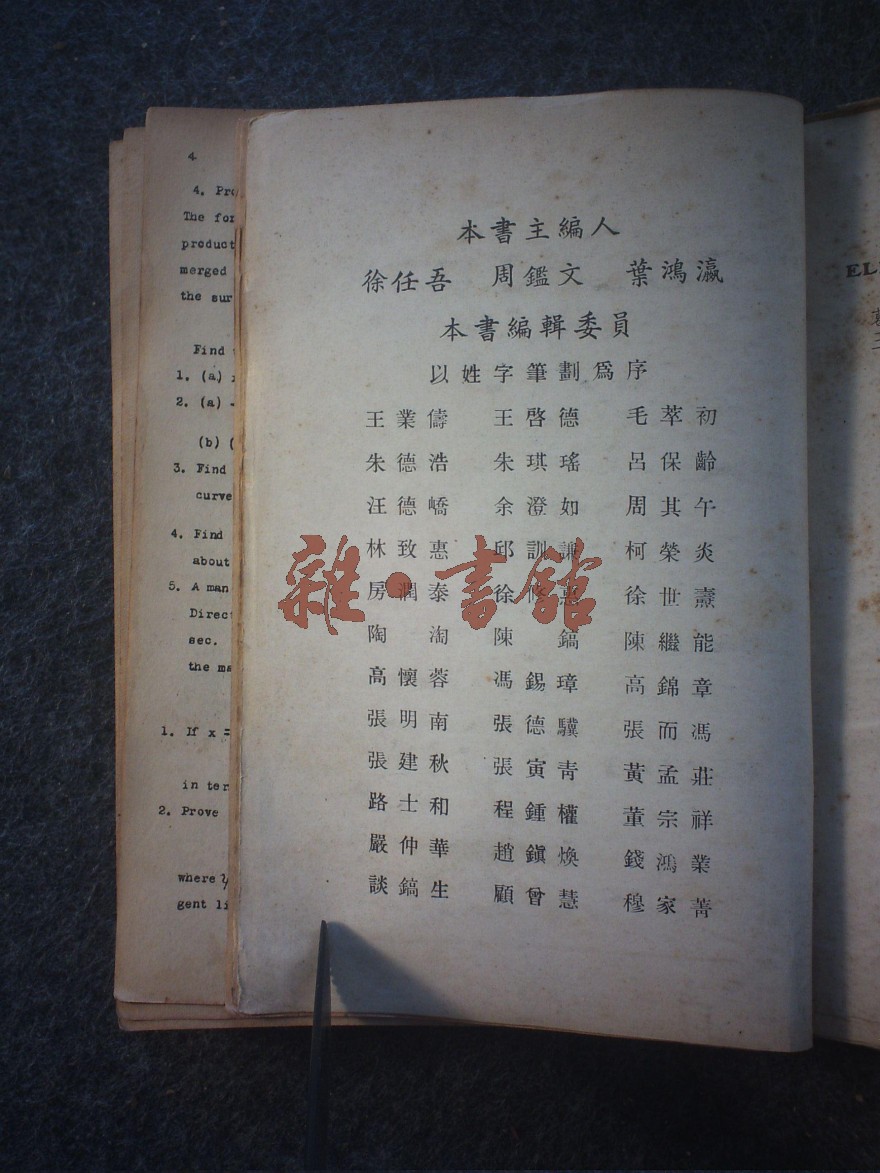 本書主編人
徐任吾 周鑑文 葉鴻瀛
本書編輯委員
以姓字筆劃為序
王業儔 王啓德 毛萃初
朱德浩 朱琪瑤 呂保齡
汪德嶠 余澄如 周其午
林致惠 邱訓謙 柯榮炎
房潤泰 徐修惠 徐世燾
陶淘 陳鎬 陳繼能
高懷蓉 馮錫璋 高錦章
張明南 張德驥 張而馮
張建秋 張寅青 黃孟莊
路士和 程鍾權 董宗祥
嚴仲華 趙鎭煥 錢鴻業
談鎬生 顧曾慧 穆家菁
雜·書館
4
4. Pro
The for
product
merged
the sur
Find
1. (a)
2. (a) -
(b) (
3. Find
curve
4. Find
about
5. A man
Direct
sec.
the ma
1. If x =
in ter
2. Prove
where
gent li
EL